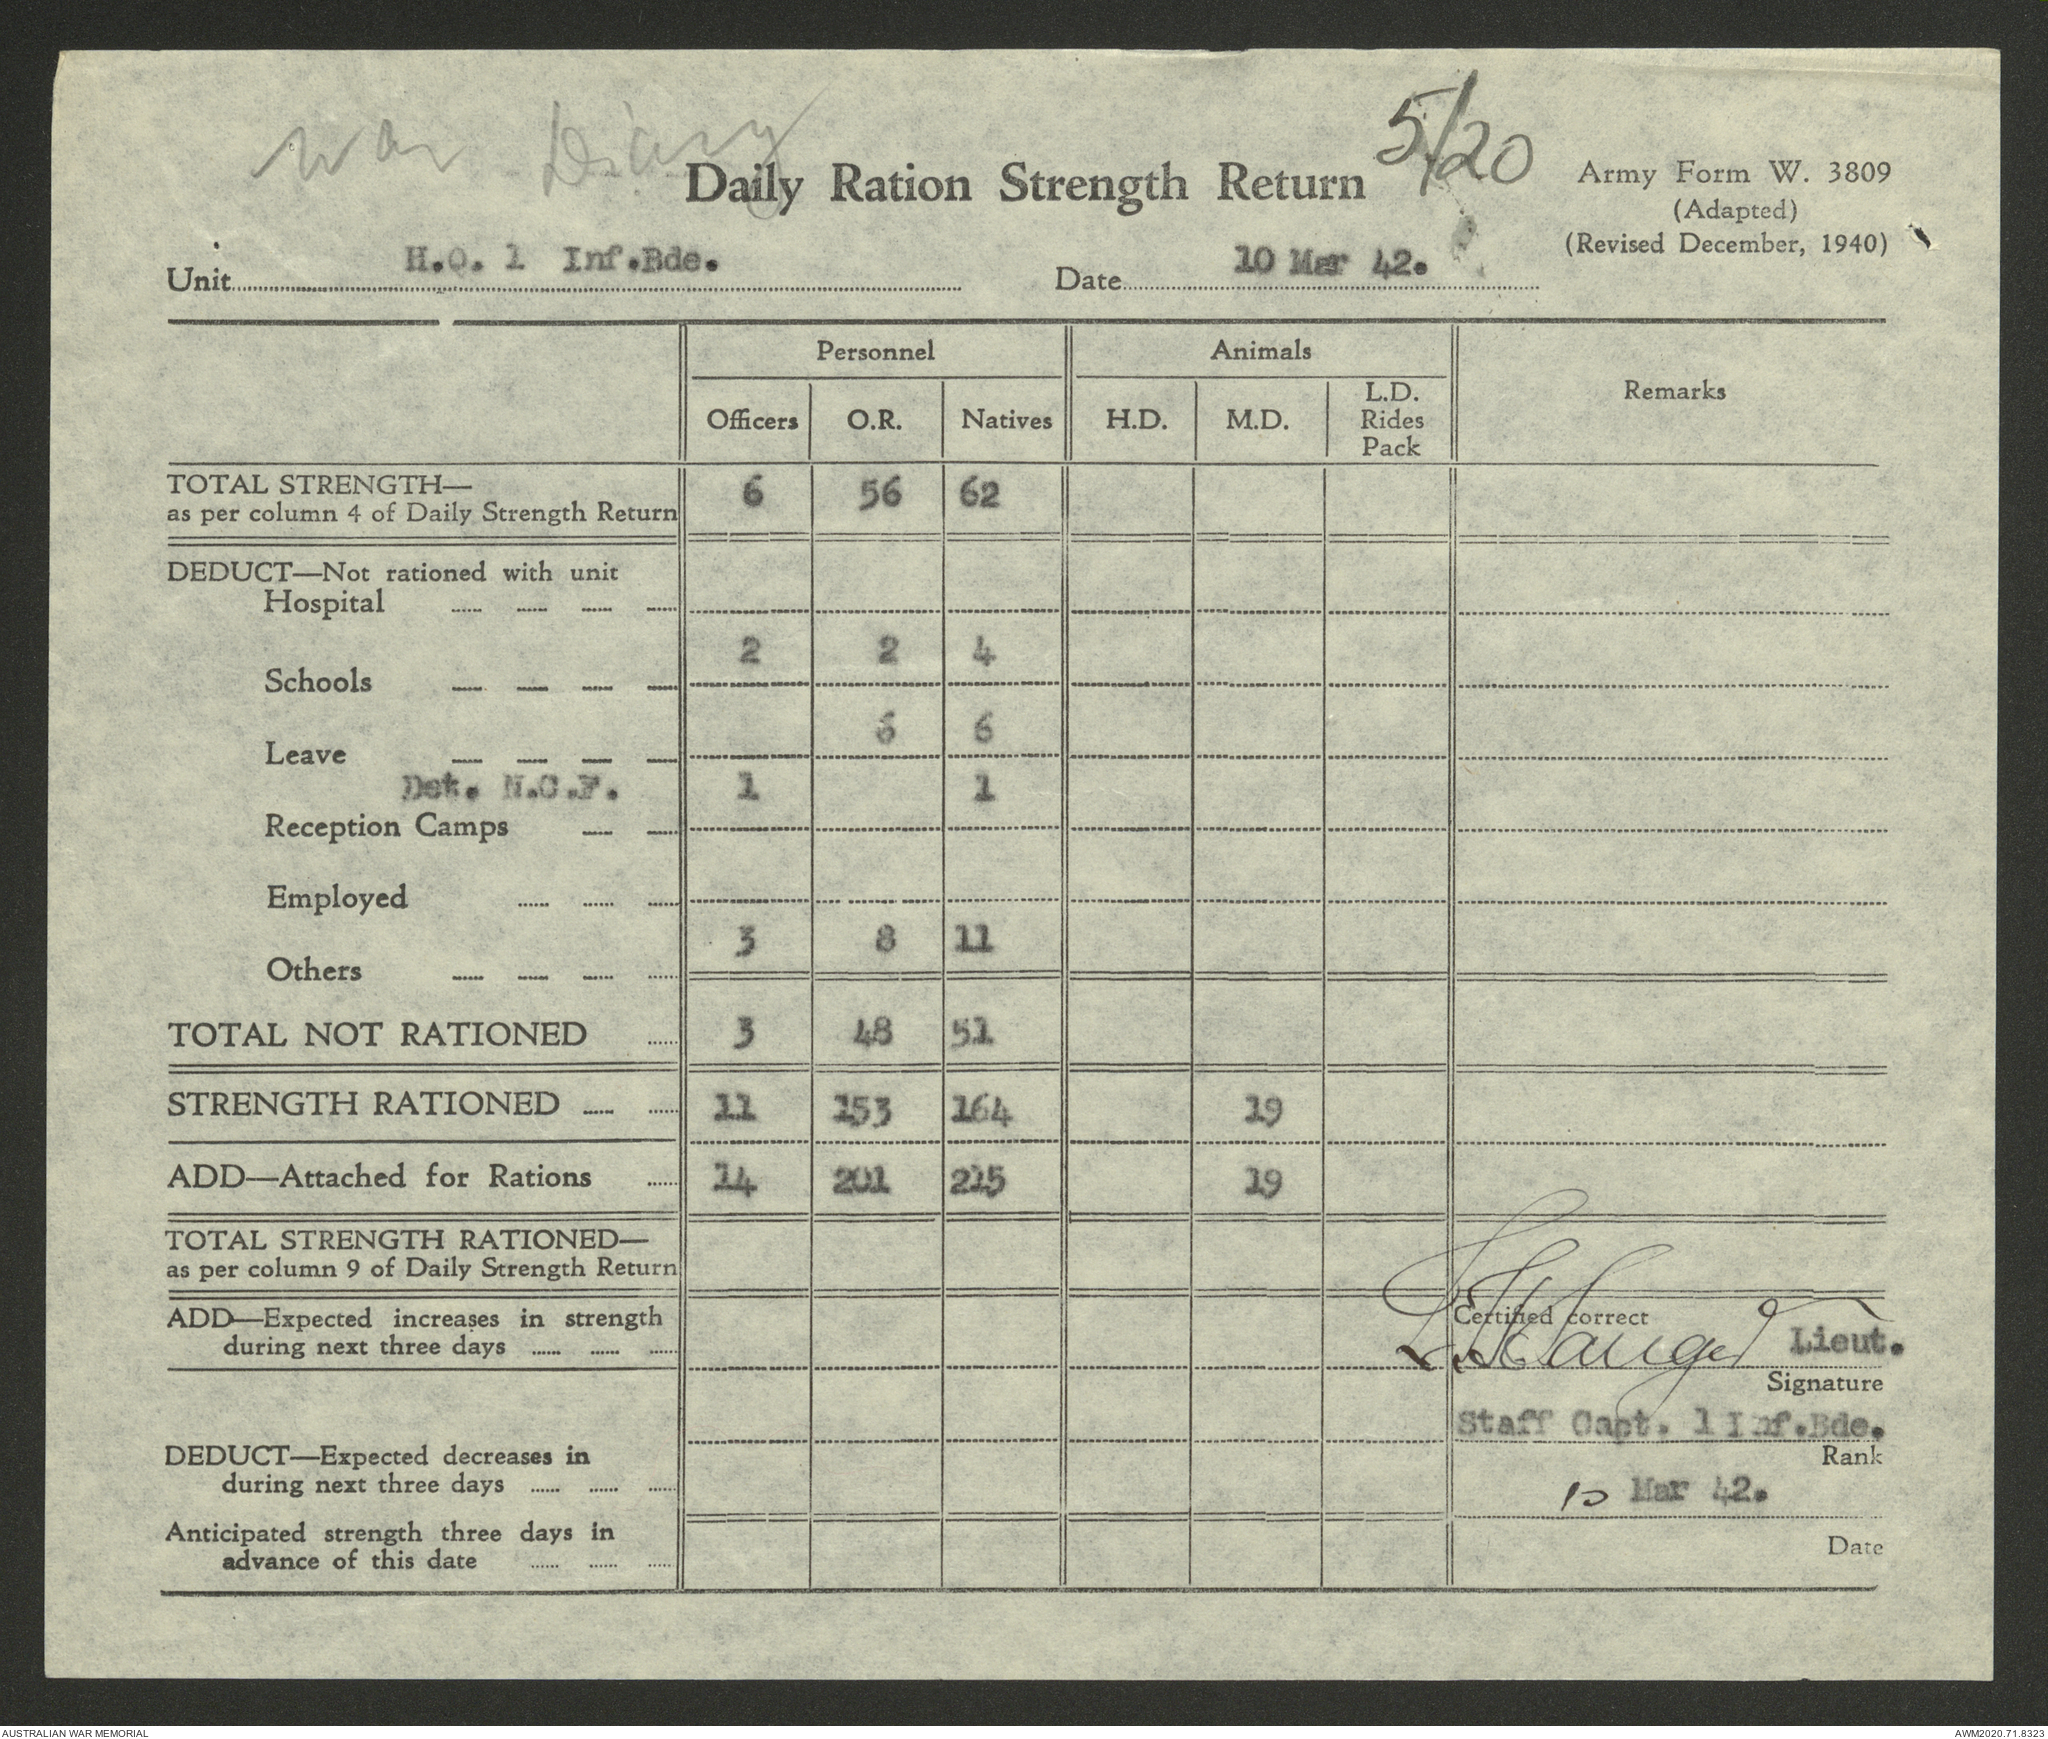 War Diary
5/20
Daily Ration Strength Return
Army Form W. 3809
(Adapted)
(Revised December, 1940)
Unit H.Q. 1 Inf.Bde.
Date 10 Mar 42.
Personnel Animals Remarks
Officers O.R. Natives H.D. M.D. L.D. Rides Pack
TOTAL STRENGTH—
as per column 4 of Daily Strength Return 6 56 62
DEDUCT—Not rationed with unit
Hospital
2 2 4
Schools
6 6
Leave
Det. N.G.F. 1 1
Reception Camps
Employed
3 8 11
Others
TOTAL NOT RATIONED 3 48 51
STRENGTH RATIONED 11 153 164 19
ADD—Attached for Rations 14 201 215 19
TOTAL STRENGTH RATIONED—
as per column 9 of Daily Strength Return
ADD—Expected increases in strength
during next three days
Certified correct
Lieut.
Signature
Staff Capt. 1 Inf.Bde.
Rank
DEDUCT—Expected decreases in
during next three days
10 Mar 42.
Date
Anticipated strength three days in
advance of this date
AUSTRALIAN WAR MEMORIAL
AWM2020.71.8323